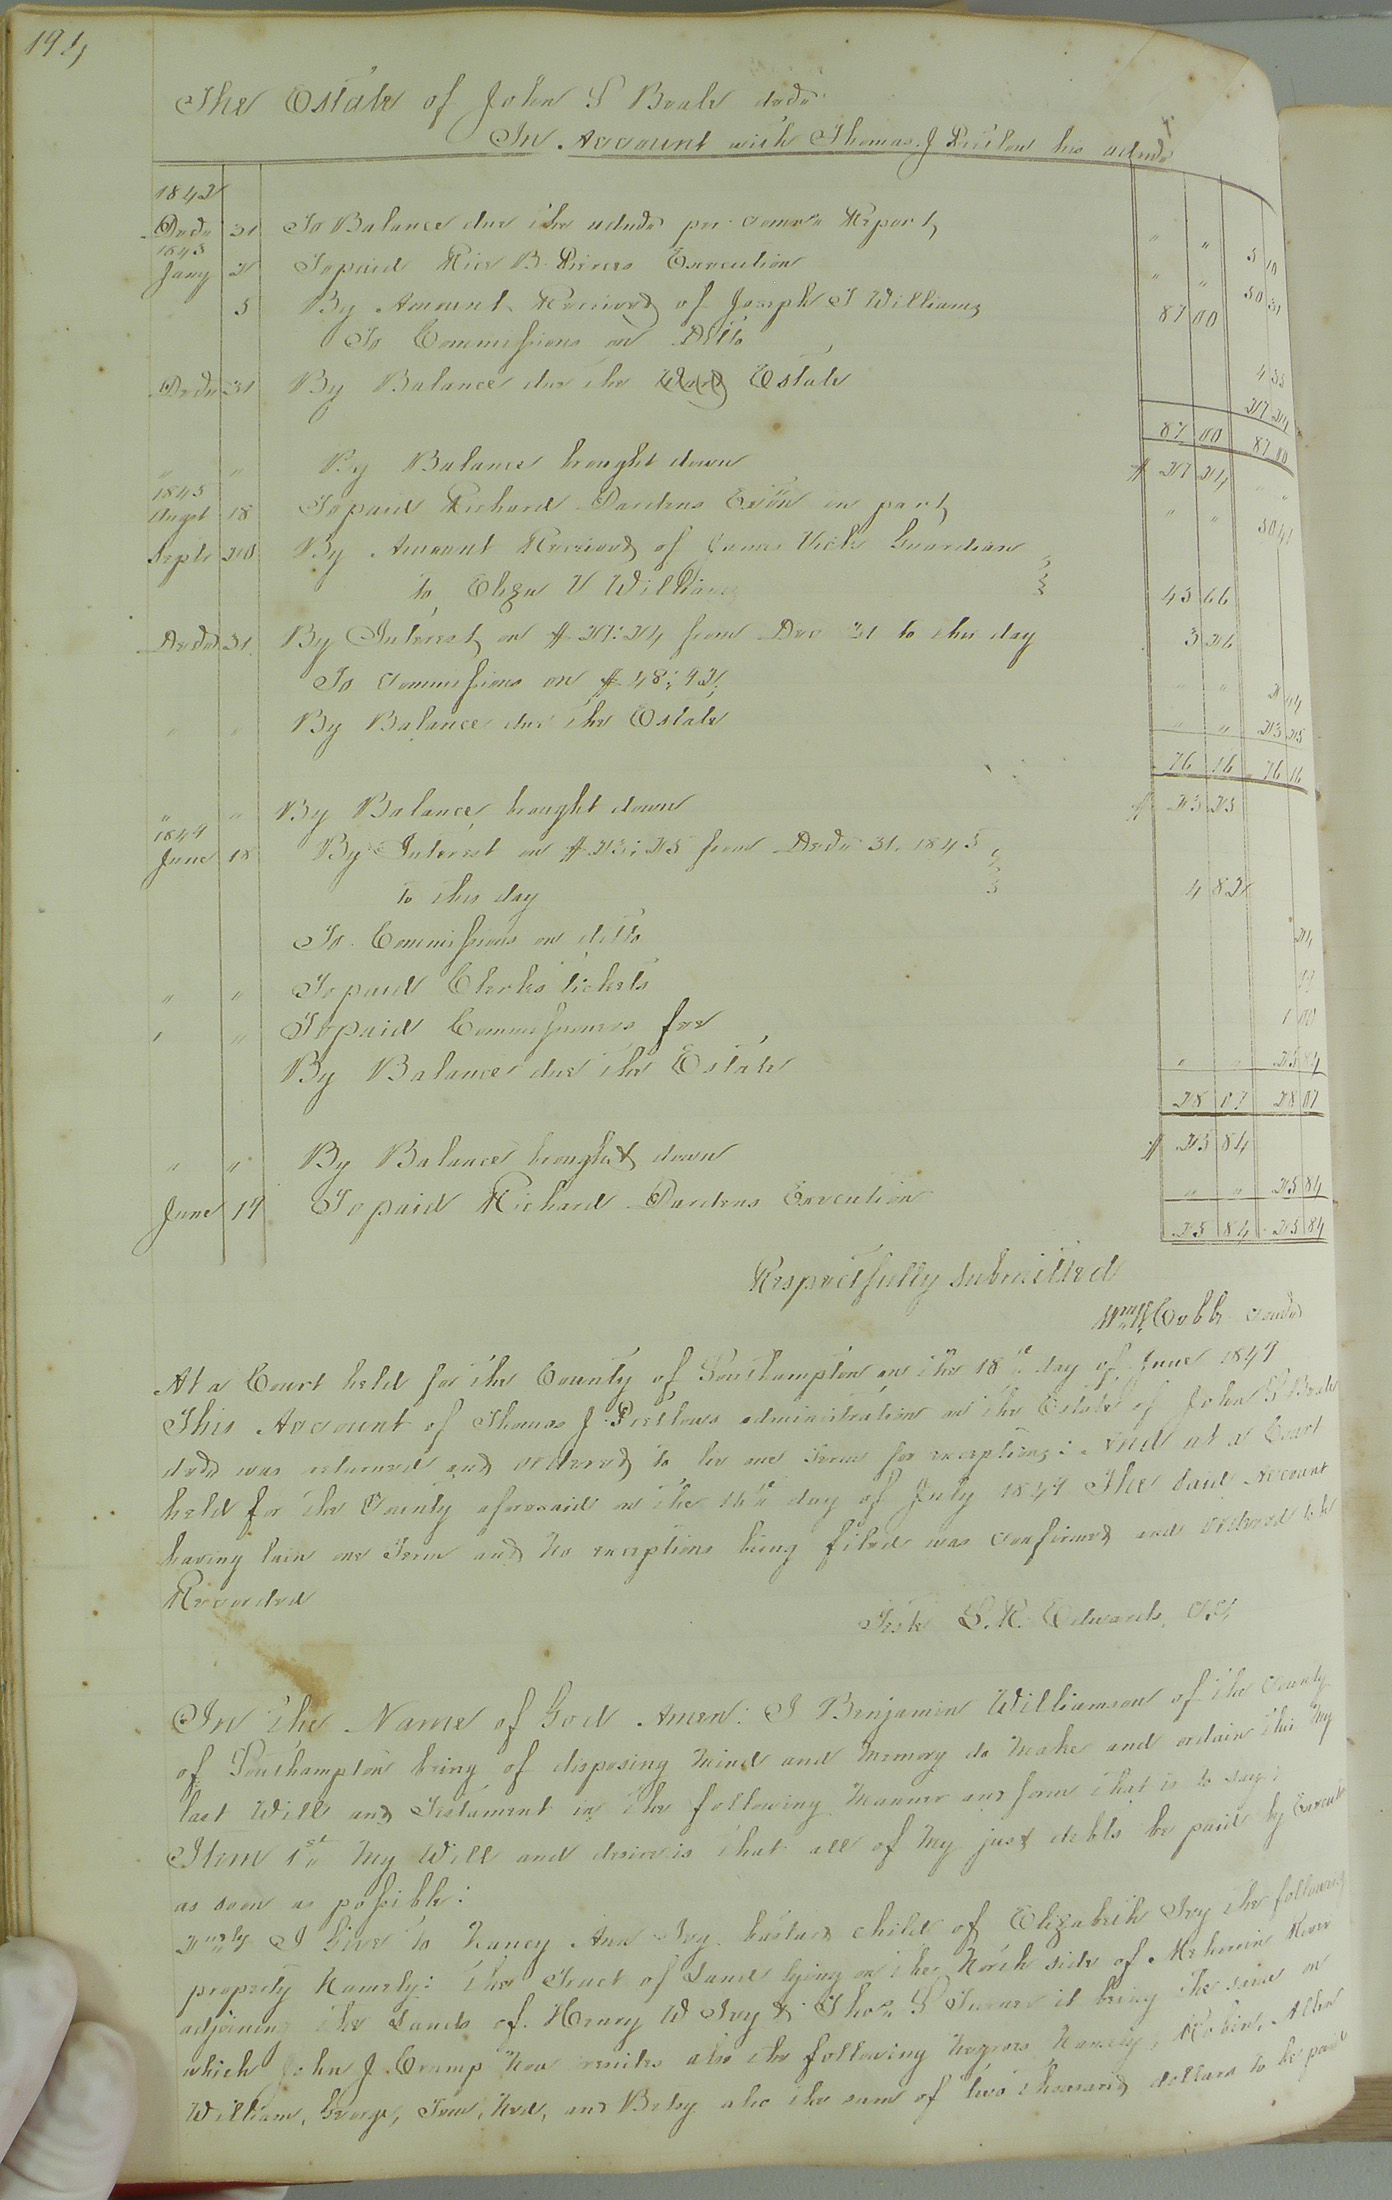 194
The Estate of John S Beale decd
In Account with Thomas J Pretlow his admr
1842
Decr 31 To Balance due the admr per comrs Report " " 5 10
1843
Jany 2 To paid Rice B. Execution " " 50 31
5 By Amount Received of Joseph T Williams 87 00
To Commissions on Ditto 4 35
Decr 31 By Balance due the Estate 27 24
87 00 87 00
" " By Balance brought down $ 27 24 " "
1845
Augst 18 To paid Richard Dardens Exōn in part " " 50 47
Septr 20 By Amount Received of James Vick Guardian
to Eliza V Williams 45 66
Decr 31 By Interest on $27:24 from Dec 31 to this day 3 26
To Commissions on $48:92 " " 2 44
" " By Balance due the Estate " " 23 25
76 16 76 16
" " By Balance brought down $ 23 25
1849
June 18 By Interest on $23:25 from Decr 31. 1845
to this day 4 82
To Commissions on ditto 24
" " To paid Clerks tickets 99
" " To paid Commissioners fee 1 00
By Balance due the Estate " " 25 84
28 07 28 07
" " By Balance brought down $ 25 84
June 19 To paid Richard Dardens Execution " " 25 84
25 84 25 84
Respectfully Submitted
Cobb comr
At a Court held for the County of Southampton on the 18th day of June 1849
This Account of Thomas J Pretlows administration on the Estate of John S Beale
decd was returned and ordered to lie one Term for exceptions: And at a Court
held for the County aforesaid on the 16th day of July 1849 The Said Account
having lain one Term and no exceptions being filed was confirmed and ordered to be
Recorded
Teste L. R. Edwards, CC,
In the Name of God Amen: I Benjamin Williamson of the County
of Southampton being of disposing mind and memory do make and ordain this my
last Will and Testament in the following Manner and form that is to say:
Item 1st My Will and desire is that all of my just debts be paid by Executor
as soon as possible:
2ndly I Give to Nancy Ann Ivy bastard child of Elizabeth Ivy the following
property Namely: the Tract of Land lying on the North side of Meherrin River
adjoining the Lands of Henry W Ivy & Thos. L Turner it being the same on
which John J. Crump now resides also the following Negroes Namely, Robin, Allen
William, George, Tom, Ned, and Betsy also the sum of two thousand dollars to be paid